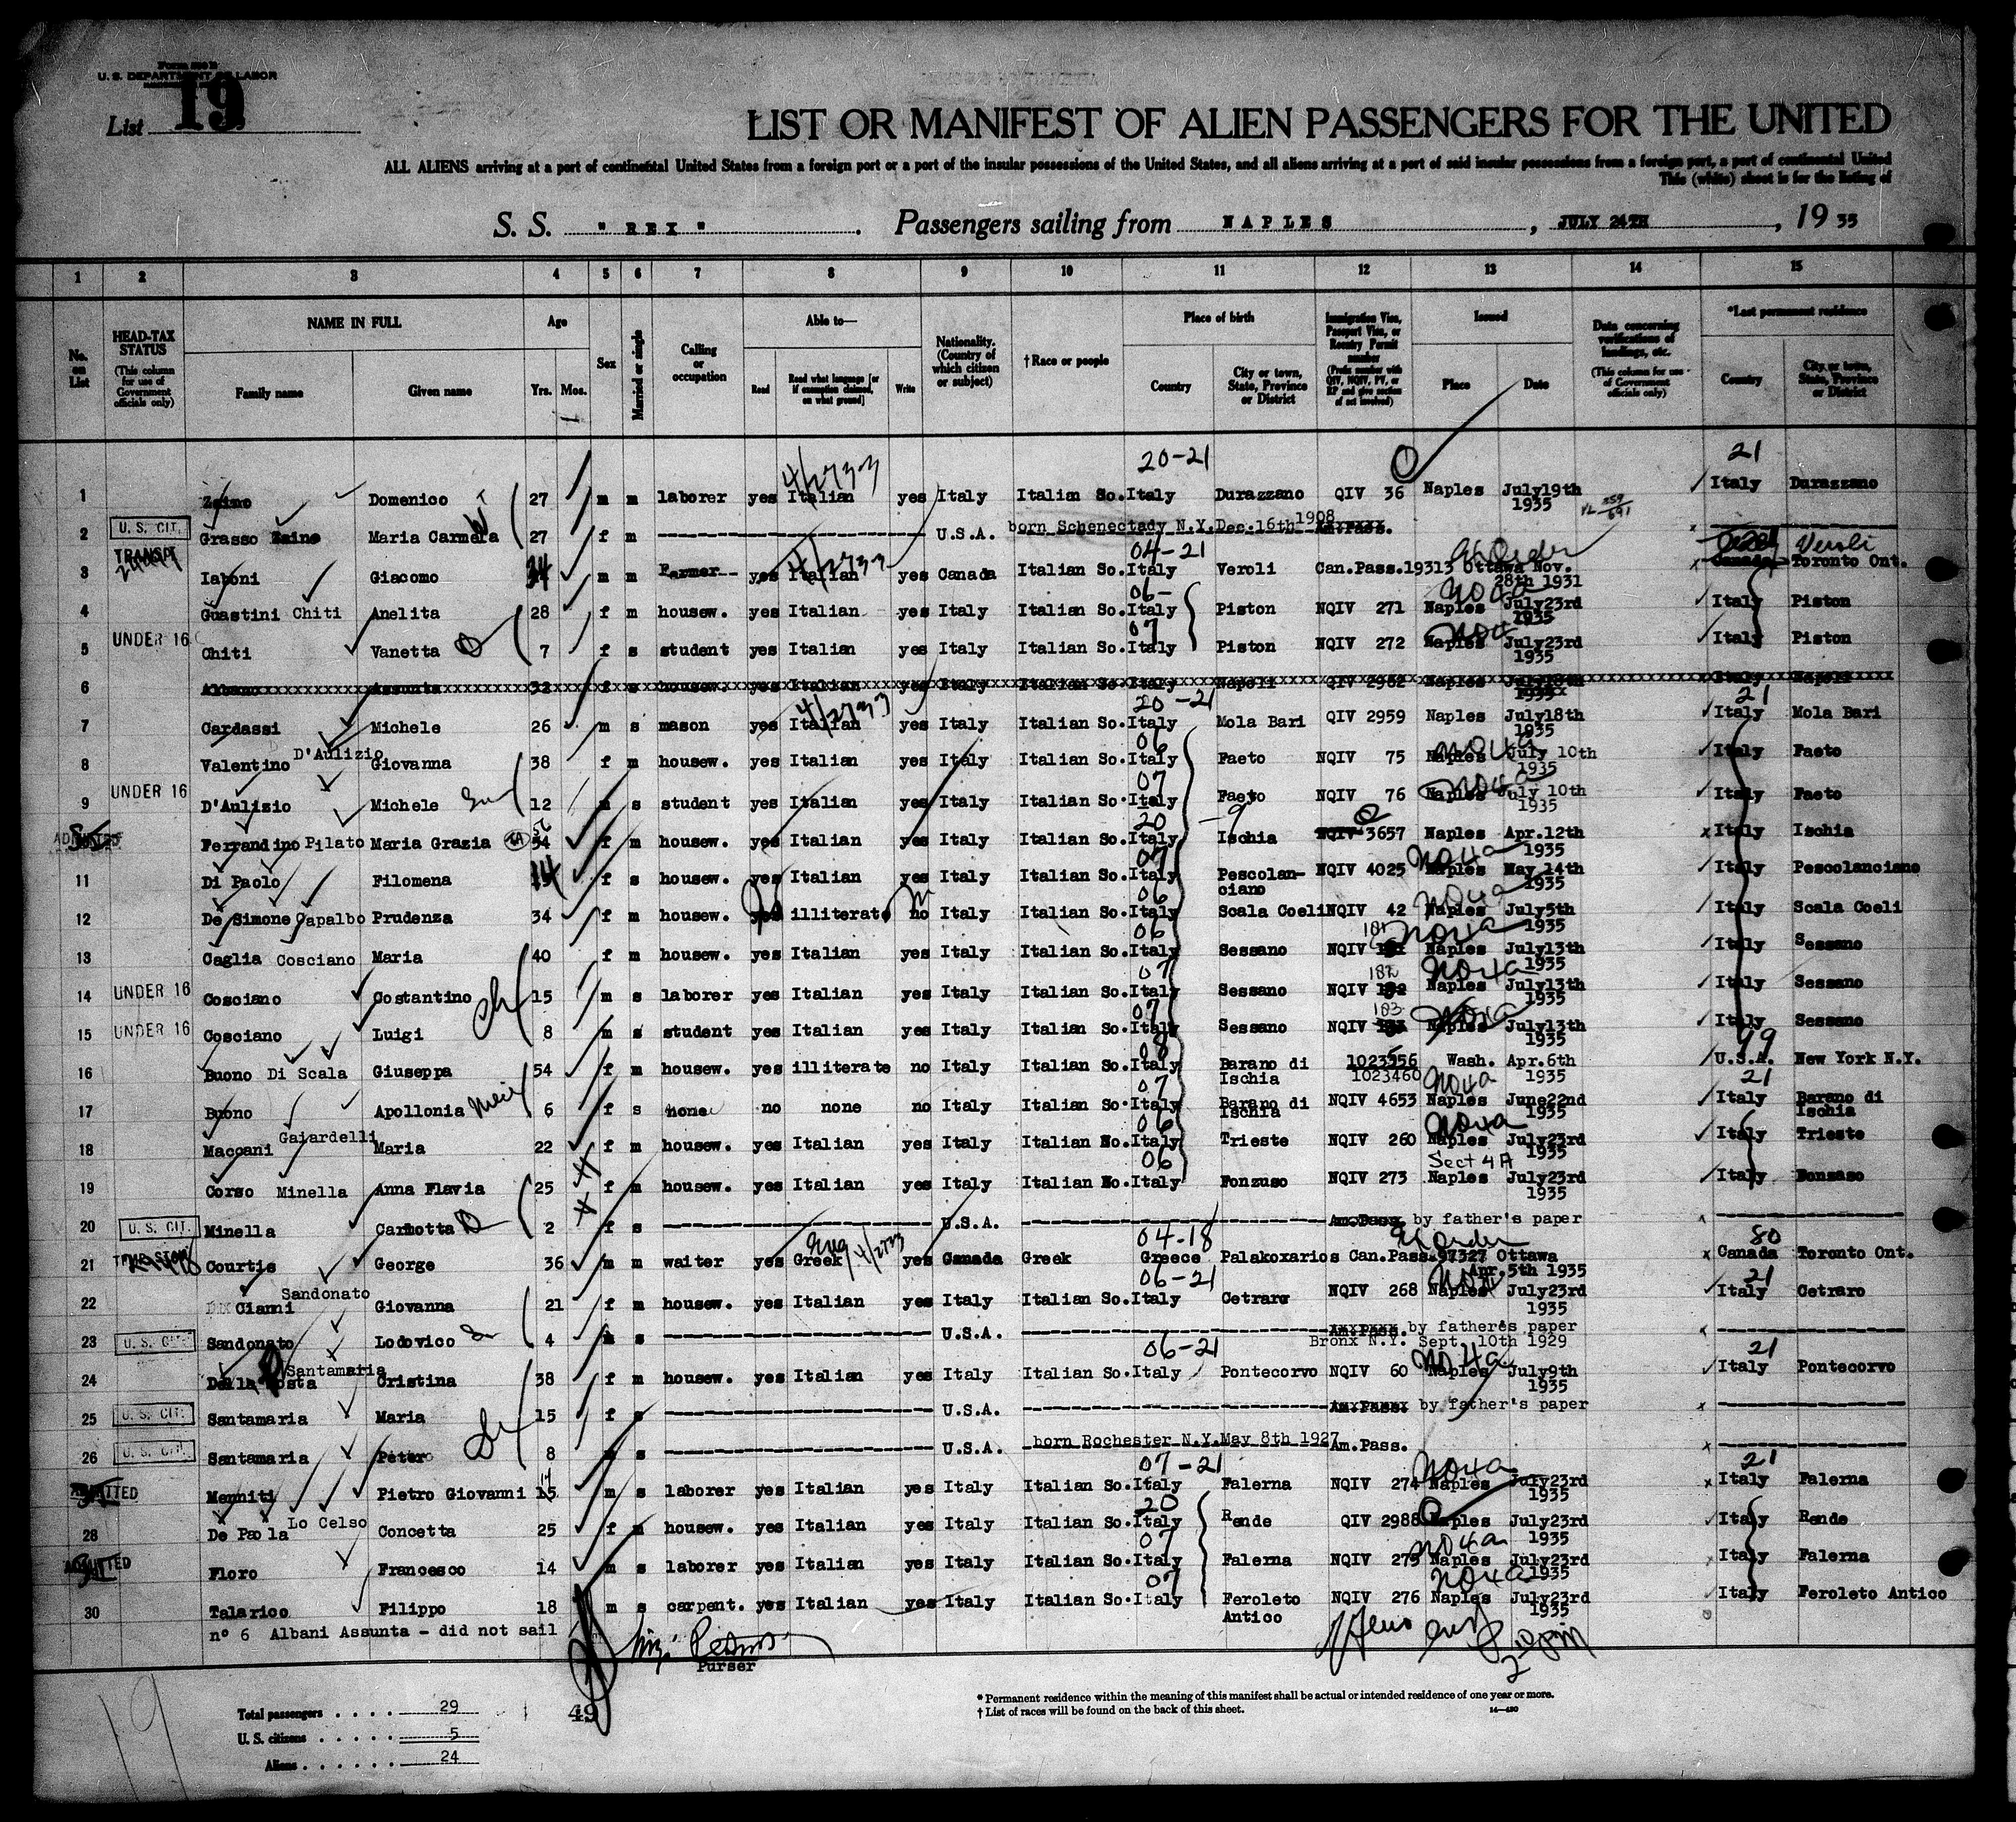 Form 500 B
U. S. DEPARTMENT OF LABOR
List 19
LIST OR MANIFEST OF ALIEN PASSENGERS FOR THE UNITED
ALL ALIENS arriving at a port of continental United States from a foreign port or a port of the insular possessions of the United States, and all aliens arriving at a port of said insular possessions from a foreign port, a port of continental United
This (white) sheet is for the listing of
S. S. " REX " . Passengers sailing from NAPLES , JULY 24TH , 19 35
1 2 3 4 5 6 7 8 9 10 11 12 13 14 15
No. on List
HEAD-TAX STATUS (This column for use of Government officials only)
NAME IN FULL Family name Given name
Age Yrs. Mos.
Sex
Married or single
Calling or occupation
Able to— Read Read what language [or if exemption claimed, on what ground] Write
Nationality. (Country of which citizen or subject)
† Race or people
Place of birth Country City or town, State, Province or District
Immigration Visa, Passport Visa, or Reentry Permit number (Prefix number with QIV, NQIV, PV, or RP and give section of act involved)
Issued Place Date
Data concerning verifications of landings, etc. (This column for use of Government officials only)
*Last permanent residence Country City or town, State, Province or District
4/2733 20-21 21
1 Zaino Domenico 27 m m laborer yes Italian yes Italy Italian So. Italy Durazzano QIV 36 Naples July19th 1935 Italy Durazzano
2 U. S. CIT. Grasso Zaino Maria Carmela 27 f m U.S.A. born Schenectady N.Y.Dec.16th 1908 Am.Pass.
4/2733 04-21 Veroli
3 Iaboni Giacomo 34 m m Farmer yes Italian yes Canada Italian So. Italy Veroli Can.Pass.19313 Ottawa Nov. 28th 1931 Canada Toronto Ont.
06- No4a
4 Guastini Chiti Anelita 28 f m housew. yes Italian yes Italy Italian So. Italy Piston NQIV 271 Naples July23rd 1935 Italy Piston
07 No4a
5 UNDER 16 Chiti Vanetta 7 f s student yes Italian yes Italy Italian So. Italy Piston NQIV 272 Naples July23rd 1935 Italy Piston
6 Albano Assunta 32 f s housew. yes Italian yes Italy Italian So. Italy Napoli QIV 2962 Naples July18th 1935 Italy Napoli
4/2733 20-21 21
7 Cardassi Michele 26 m s mason yes Italian yes Italy Italian So. Italy Mola Bari QIV 2959 Naples July18th 1935 Italy Mola Bari
06 No4a
8 Valentino D'Aulizio Giovanna 38 f m housew. yes Italian yes Italy Italian So. Italy Faeto NQIV 75 Naples July 10th 1935 Italy Faeto
07 No4a
9 UNDER 16 D'Aulisio Michele 12 m s student yes Italian yes Italy Italian So. Italy Faeto NQIV 76 Naples July 10th 1935 Italy Faeto
20 -9
ADMITTED Ferrandino Pilato Maria Grazia 54 f m housew. yes Italian yes Italy Italian So. Italy Ischia NQIV 3657 Naples Apr.12th 1935 Italy Ischia
07 No4a
11 Di Paolo Filomena 14 f s housew. yes Italian yes Italy Italian So. Italy Pescolanciano NQIV 4025 Naples May 14th 1935 Italy Pescolanciano
06 No4a
12 De Simone Capalbo Prudenza 34 f m housew. yes illiterate no Italy Italian So. Italy Scala Coeli NQIV 42 Naples July5th 1935 Italy Scala Coeli
06 181 No4a
13 Caglia Cosciano Maria 40 f m housew. yes Italian yes Italy Italian So. Italy Sessano NQIV Naples July13th 1935 Italy Sessano
07 182 No4a
14 UNDER 16 Cosciano Costantino 15 m s laborer yes Italian yes Italy Italian So. Italy Sessano NQIV Naples July13th 1935 Italy Sessano
07 183 No4a
15 UNDER 16 Cosciano Luigi 8 m s student yes Italian yes Italy Italian So. Italy Sessano NQIV Naples July13th 1935 Italy Sessano
08 99
16 Buono Di Scala Giuseppa 54 f m housew. yes illiterate no Italy Italian So. Italy Barano di Ischia 1023356 1023460 Wash. Apr.6th 1935 U.S.A. New York N.Y.
07 No4a 21
17 Buono Apollonia 6 f s none no none no Italy Italian So. Italy Barano di Ischia NQIV 4653 Naples June22nd 1935 Italy Barano di Ischia
06 No4a
18 Maccani Gaiardelli Maria 22 f m housew. yes Italian yes Italy Italian No. Italy Trieste NQIV 260 Naples July23rd 1935 Italy Trieste
06 Sect 4A
19 Corso Minella Anna Flavia 25 f m housew. yes Italian yes Italy Italian No. Italy Fonzuso NQIV 273 Naples July23rd 1935 Italy Fonzaso
20 U. S. CIT. Minella Carlotta 2 f s U.S.A. Am.Pass. by father's paper
Eng 4/2733 04-18 80
21 Courtis George 36 m m waiter yes Greek yes Canada Greek Greece Palakoxarios Can.Pass.97327 Ottawa Apr.5th 1935 Canada Toronto Ont.
06-21 No4a 21
22 Cianni Sandonato Giovanna 21 f m housew. yes Italian yes Italy Italian So. Italy Cetraro NQIV 268 Naples July23rd 1935 Italy Cetraro
23 U. S. CIT. Sandonato Lodovico 4 m s U.S.A. Am.Pass. by fatheres paper Bronx N.Y. Sept. 10th 1929
06-21 No4a 21
24 Della Posta Santamaria Cristina 38 f m housew. yes Italian yes Italy Italian So. Italy Pontecorvo NQIV 60 Naples July9th 1935 Italy Pontecorvo
25 U. S. CIT. Santamaria Maria 15 f s U.S.A. Am.Pass. by father's paper
26 U. S. CIT. Santamaria Peter 8 m s U.S.A. born Rochester N.Y.May 8th 1927 Am.Pass.
07-21 No4a 21
ADMITTED Menniti Pietro Giovanni 15 m s laborer yes Italian yes Italy Italian So. Italy Falerna NQIV 274 Naples July23rd 1935 Italy Falerna
20
28 De Paola Lo Celso Concetta 25 f m housew. yes Italian yes Italy Italian So. Italy Rende QIV 2988 Naples July23rd 1935 Italy Rende
07 No4a
ADMITTED Floro Francesco 14 m s laborer yes Italian yes Italy Italian So. Italy Falerna NQIV 275 Naples July23rd 1935 Italy Falerna
07 No4a
30 Talarico Filippo 18 m s carpent. yes Italian yes Italy Italian So. Italy Feroleto Antico NQIV 276 Naples July23rd 1935 Italy Feroleto Antico
n° 6 Albani Assunta - did not sail
Purser
* Permanent residence within the meaning of this manifest shall be actual or intended residence of one year or more.
† List of races will be found on the back of this sheet.
Total passengers . . . . 29
49
U. S. citizens . . . . . 5
Aliens . . . . . . 24
19